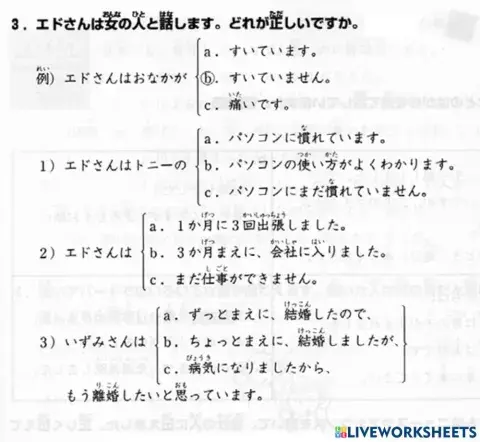 3．エドさんは女の人と話します。どれが正しいですか。
a．すいています。
例）エドさんはおなかが ⓑ．すいていません。
c．痛いです。
a．パソコンに慣れています。
1）エドさんはトニーの b．パソコンの使い方がよくわかります。
c．パソコンにまだ慣れていません。
a．1か月に3回出張しました。
2）エドさんは b．3か月まえに、会社に入りました。
c．まだ仕事ができません。
a．ずっとまえに、結婚したので、
3）いずみさんは b．ちょっとまえに、結婚しましたが、
c．病気になりましたから、
もう離婚したいと思っています。
LIVEWORKSHEETS